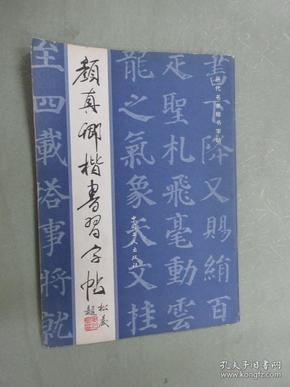 顏真卿楷書習字帖
歷代名家楷書字帖
書下降又賜絹百
疋聖札飛毫動雲
龍之氣象天文挂
至四載塔事將就
孔夫子旧书网